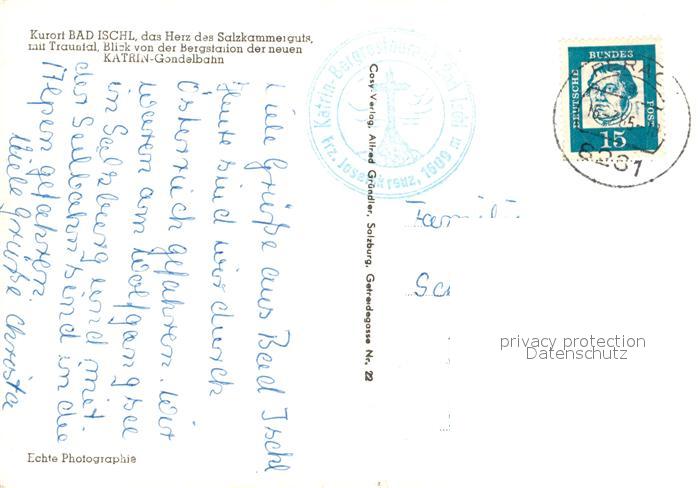 Kurort BAD ISCHL, das Herz des Salzkammerguts,
mit Trauntal, Blick von der Bergstation der neuen
KATRIN-Gondelbahn
Viele Grüße aus Bad Ischl
Heute sind wir durch
Österreich gefahren. Wir
waren am Wolfgangsee
in Salzburg und mit
der Seilbahn sind in die
Alpen gefahren.
Viele grüße Christa
Echte Photographie
Cosy-Verlag, Alfred Gründler, Salzburg, Getreidegasse Nr. 22
Katrin-Bergrestaurant Bad Ischl
1509 m
DEUTSCHE BUNDESPOST
15
Famil
Sc
privacy protection
Datenschutz